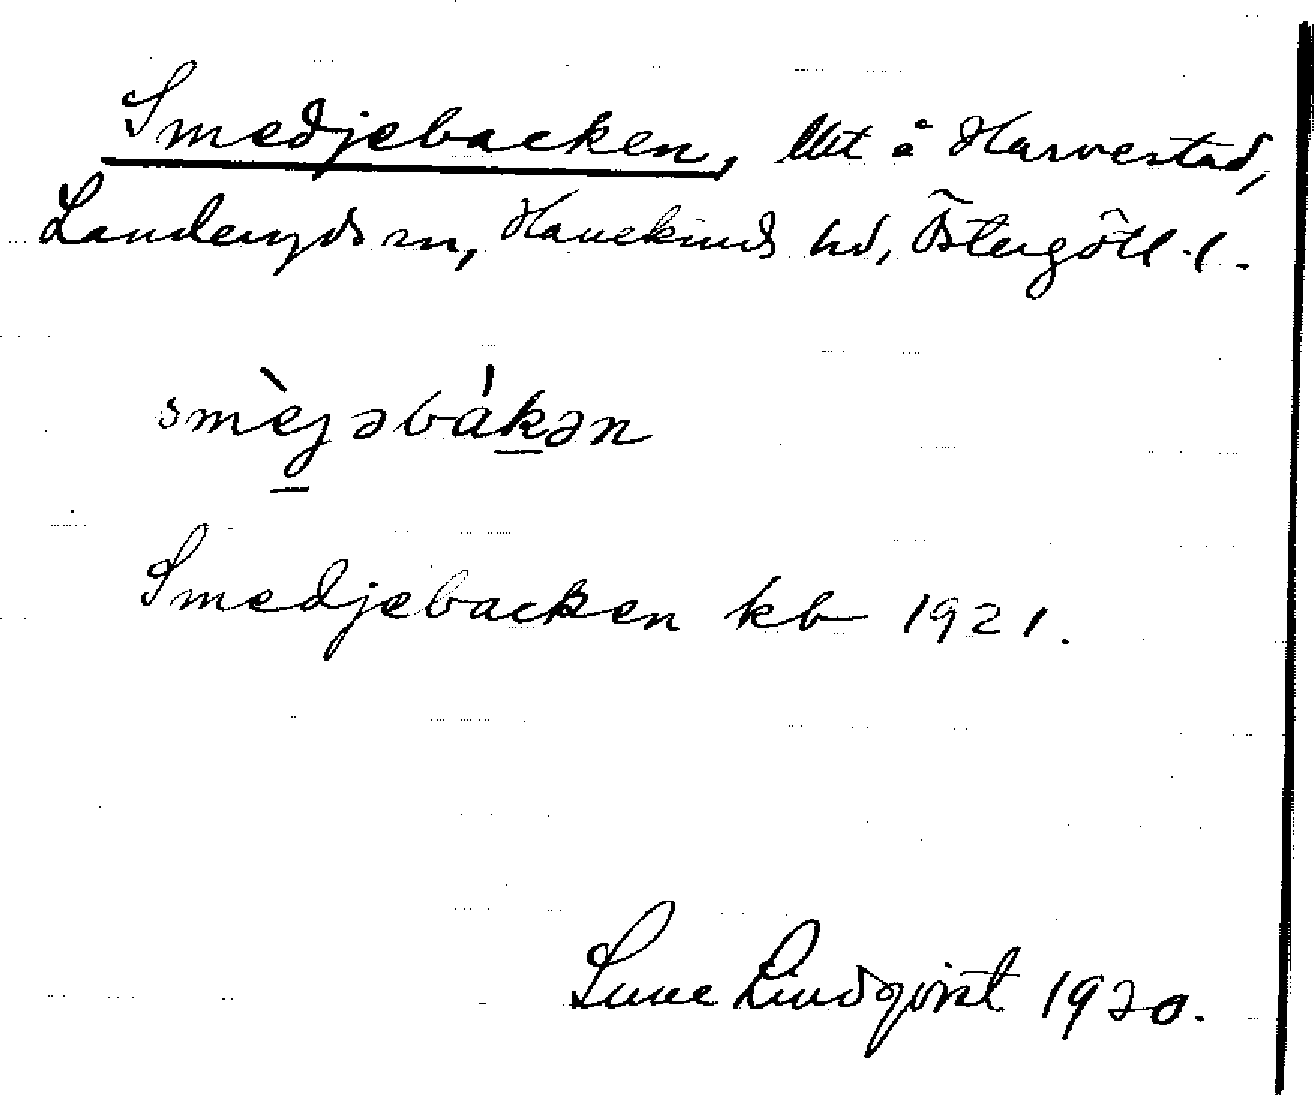 Smedjebacken, lht å Harvestad,
Landeryds sn, Hanekinds hd, Östergötl. l.
smèjəbákən
Smedjebacken kb 1921.
Sune Lindqvist 1920.